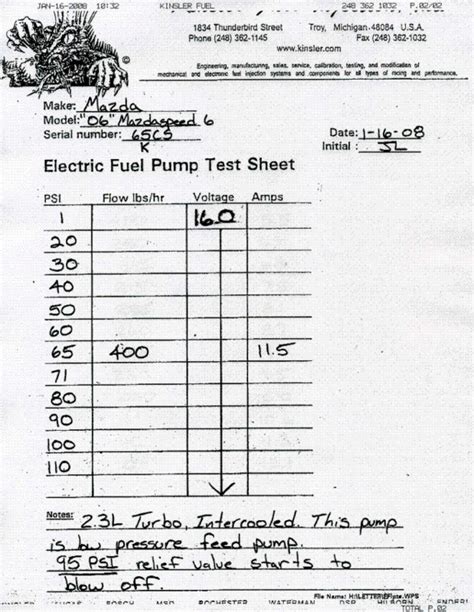 JAN-16-2008 10:32 KINSLER FUEL 248 362 1032 P.02/02
1834 Thunderbird Street Troy, Michigan-48084 U.S.A.
Phone (248) 362-1145 Fax (248) 362-1032
www.kinsler.com
Engineering, manufacturing, sales, service, calibration, testing, and modification of
mechanical and electronic fuel injection systems and components for all types of racing and performance.
Make: Mazda
Model: "06" Mazdaspeed 6
Serial number: 65CS
K
Date: 1-16-08
Initial: JL
Electric Fuel Pump Test Sheet
PSI Flow lbs/hr Voltage Amps
1 16.0
20
30
40
50
60
65 400 11.5
71
80
90
100
110
Notes: 2.3L Turbo, Intercooled. This pump
is low pressure feed pump.
95 PSI relief valve starts to
blow off.
File Name: H:\LETTER\EFIpte.WPS
BOSCH MSD ROCHESTER WATERMAN HILBORN
TOTAL P.02